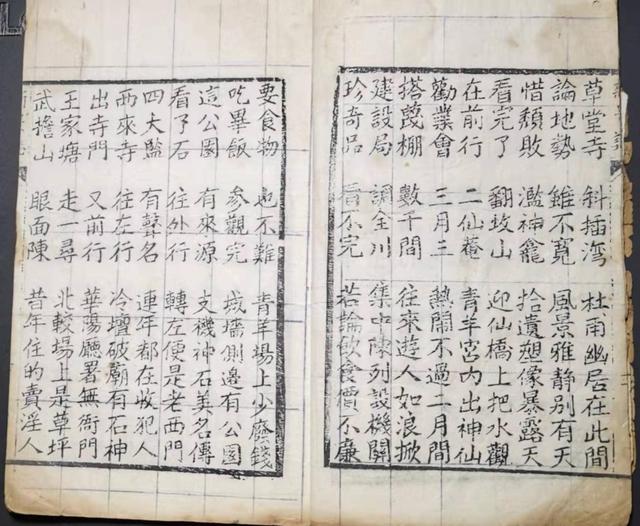 草堂寺 斜插湾 杜甫幽居在此間
論地勢 雖不寬 風景雅靜別有天
惜頹敗 濫神龕 拾遺塑像暴露天
看完了 翻坟山 迎仙橋上把水觀
在前行 二仙菴 青羊宮內出神仙
勸業會 三月三 熱鬧不過二月間
搭蔑棚 數千間 往來遊人如浪掀
建設局 調全川 集中陳列設機關
珍奇品 看不完 若論飲食價不廉
要食物 也不難 青羊場上少廢錢
吃畢飯 參觀完 城墻側邊有公園
這公園 有來源 支機神石美名傳
看了石 往外行 轉左便是老西門
四大監 有聲名 連年都在收犯人
西來寺 往左行 冷壇破廟有石神
出寺門 又前行 華陽廳署無衙門
王家塘 走一尋 北較場上是草坪
武擔山 眼面陳 昔年住的賣淫人